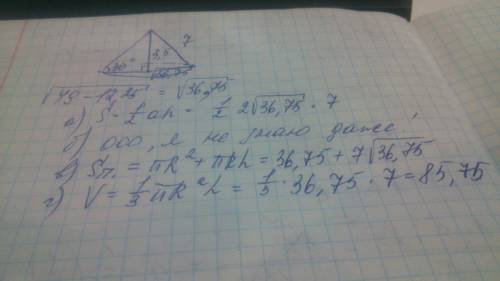 7
3,5
30°
√36,75
√49-12,25 = √36,75
а) S = 1/2 ah = 1/2 2√36,75 · 7
б) ооо, я не знаю даже,
в) Sп. = πR² + πRh = 36,75 + 7√36,75
г) V = 1/3 πR²h = 1/3 · 36,75 · 7 = 85,75